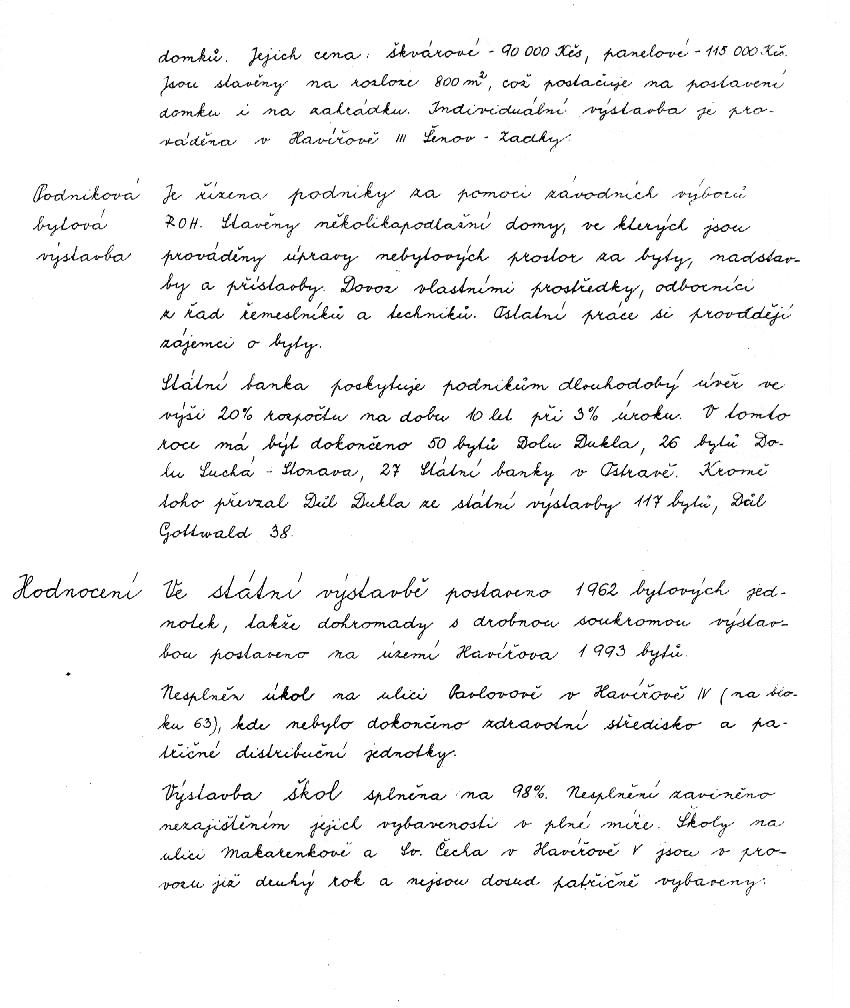 domků. Jejich cena: škvárové - 90 000 Kčs, panelové - 115 000 Kčs.
Jsou stavěny na rozloze 800 m², což postačuje na postavení
domku i na zahrádku. Individuální výstavba je pro-
váděna v Havířově III Šenov - Zadky.
Podniková
bytová
výstavba
Je řízena podniky za pomoci závodních výborů
ROH. Stavěny několikapodlažní domy, ve kterých jsou
prováděny úpravy nebytových prostor za byty, nadstav-
by a přístavby. Dovoz vlastními prostředky, odborníci
z řad řemeslníků a techniků. Ostatní práce si provddějí
zájemci o byty.
Státní banka poskytuje podnikům dlouhodobý úvěr ve
výši 20% rozpočtu na dobu 10 let při 3% úroku. V tomto
roce má být dokončeno 50 bytů Dolu Dukla, 26 bytů Do-
lu Suchá - Stonava, 27 Státní banky v Ostravě. Kromě
toho převzal Důl Dukla ze státní výstavby 117 bytů, Důl
Gottwald 38.
Hodnocení
Ve státní výstavbě postaveno 1962 bytových jed-
notek, takže dohromady s drobnou soukromou výstav-
bou postaveno na území Havířova 1 993 bytů.
Nesplněn úkol na ulici Pavlovově v Havířově IV (na blo-
ku 63), kde nebylo dokončeno zdravotní středisko a pa-
třičné distribuční jednotky.
Výstavba škol splněna na 98%. Nesplnění zaviněno
nezajištěním jejich vybavenosti v plné míře. Školy na
ulici Makarenkově a Sv. Čecha v Havířově V jsou v pro-
vozu již druhý rok a nejsou dosud patřičně vybaveny.